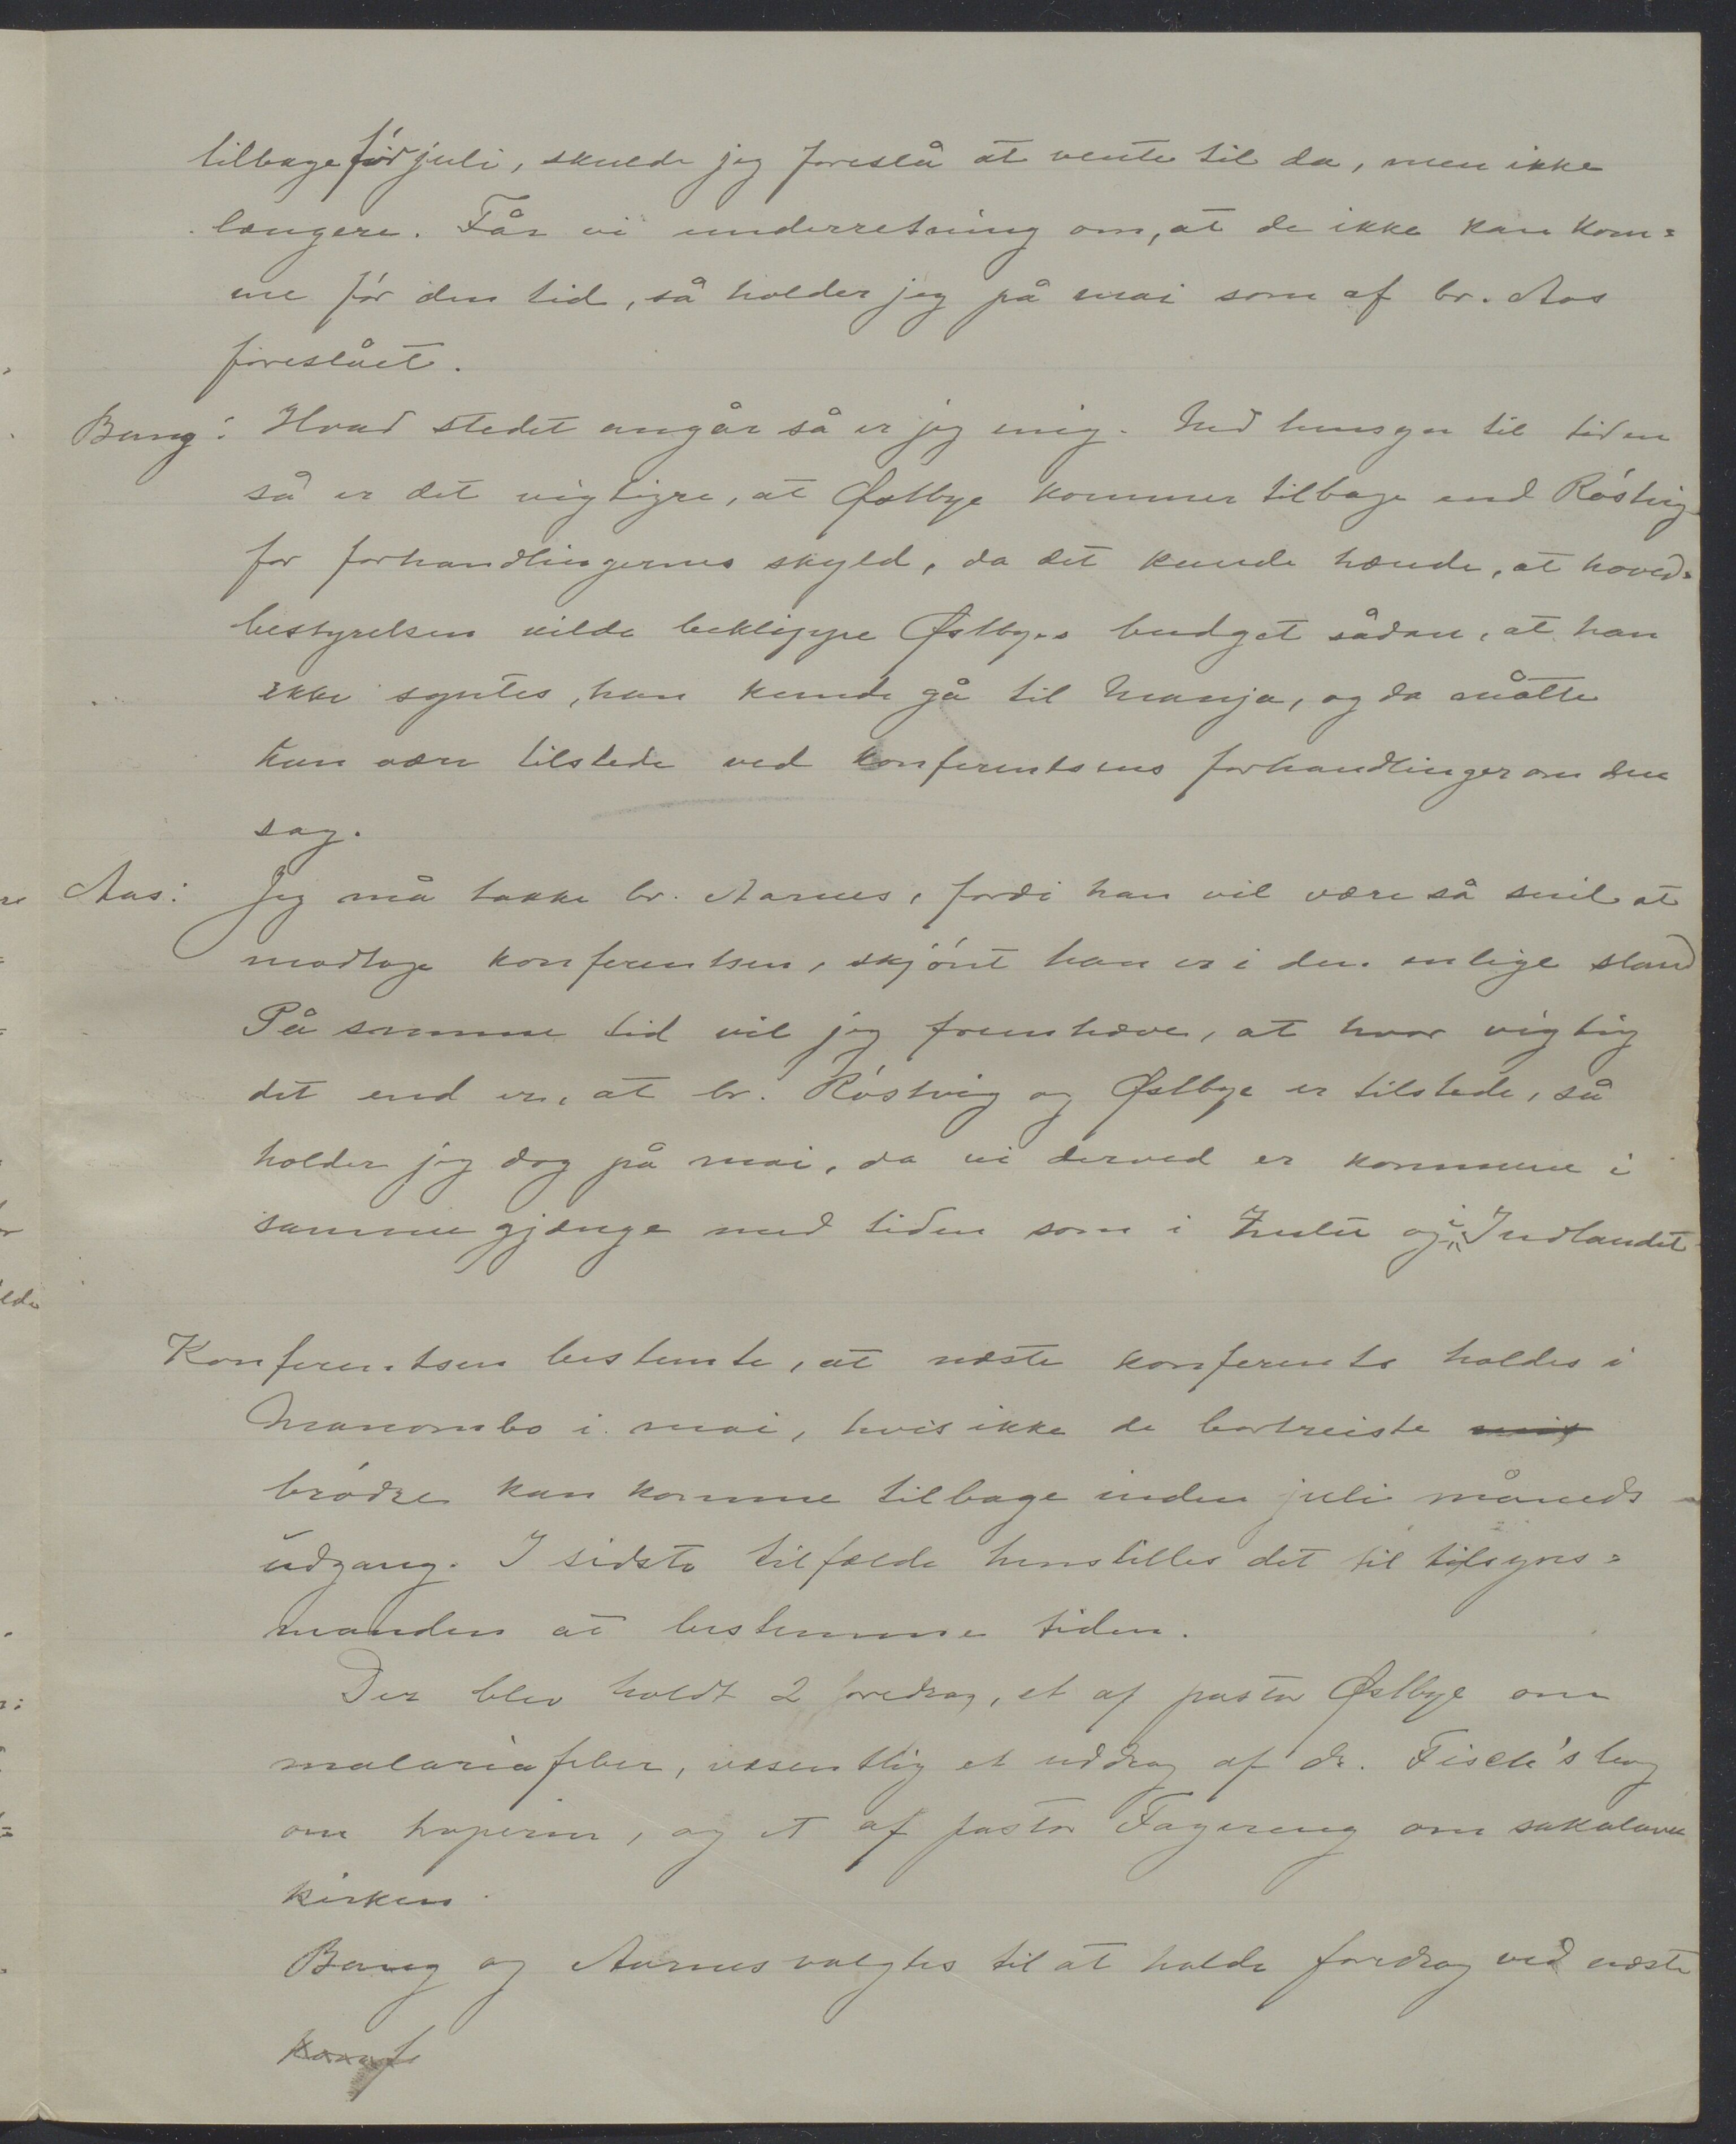 tilbage før juli, skulde jeg foreslå at vente til da, men ikke
længere. Får vi underretning om, at de ikke kan kom=
me før den tid, så holder jeg på mai som af br. Aas
foreslået.
Bang: Hvad stedet angår så er jeg enig. Med hensyn til tiden
så er det vigtigre, at Østbye kommer tilbage end Röstvig
for forhandlingernes skyld, da det kunde hænde, at hoved=
bestyrelsen vilde beklippe Østbyes budget sådan, at han
ikke syntes, han kunde gå til Manja, og da måtte
han være tilstede ved konferentsens forhandlinger om den
sag.
Aas: Jeg må takke br. Aarnes, fordi han vil være så snil at
modtage konferentsen, skjönt han er i den enlige stand
På samme tid vil jeg fremhæve, at hvor vigtig
det end er, at br. Röstvig og Østbye er tilstede, så
holder jeg dog på mai, da vi derved er kommne i
samme gjænge med tiden som i Zulu og i Indlandet
Konferentsen bestemte, at næste konferents holdes i
Manombo i mai, hvis ikke de bortreiste
brödre kan komme tilbage inden juli måneds
udgang. I sidste tilfælde henstilles det til tilsyns=
manden at bestemme tiden.
Der blev holdt 2 foredrag, et af pastor Østbye om
malariafeber, væsentlig et uddrag af dr. Fisch's bog
om troperne, og et af pastor Fagereng om sakalava
kirken.
Bang og Aarnes valgtes til at holde fordrag ved næste